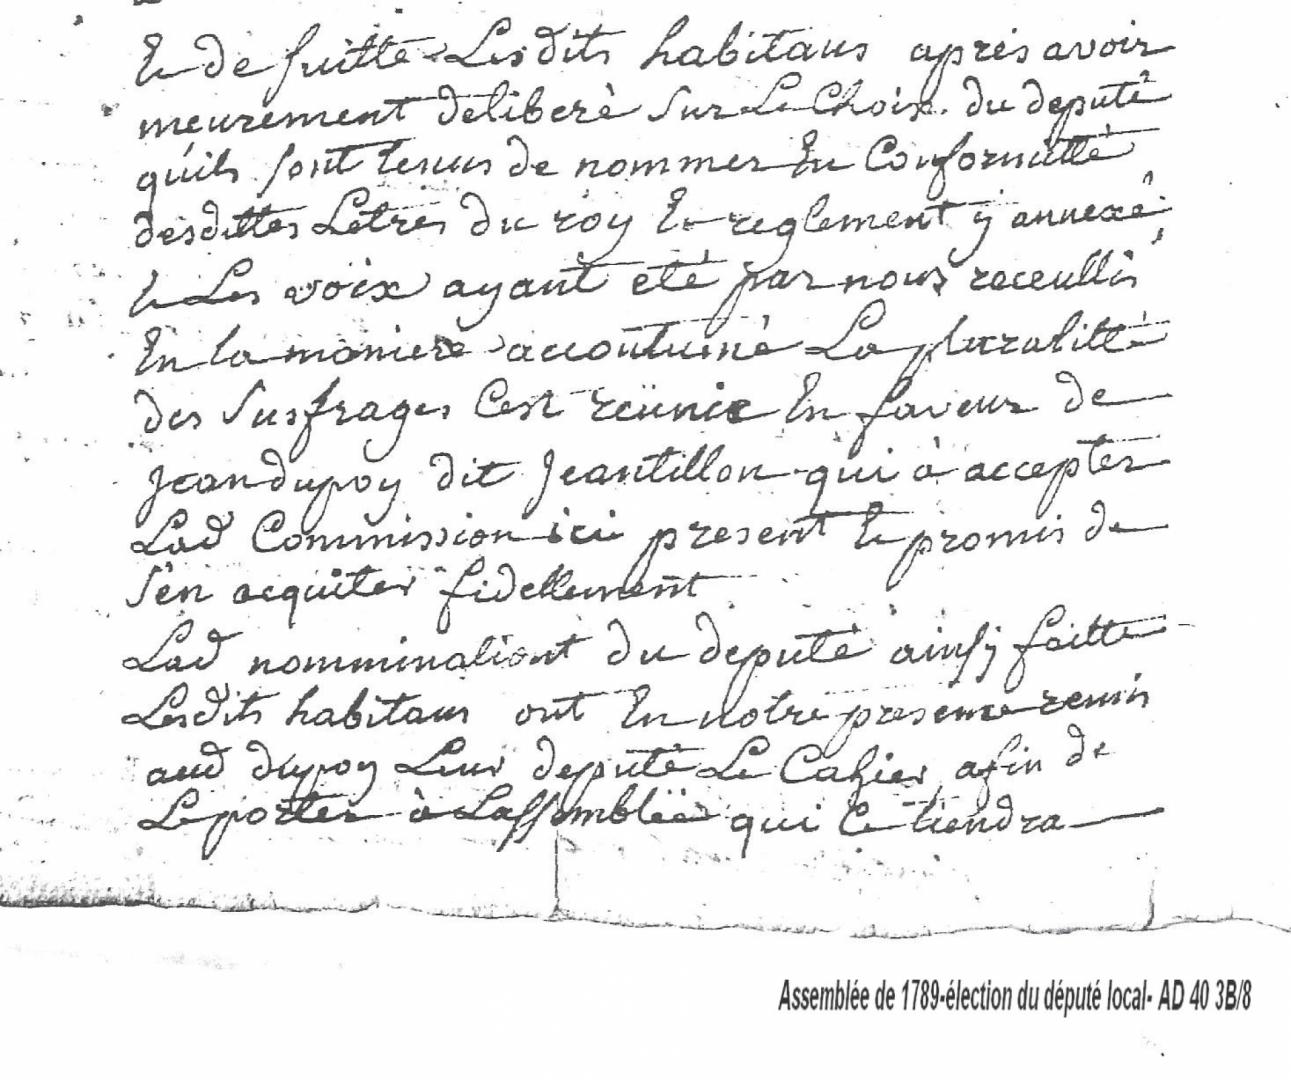 Et de suitte Lesdits habitans aprés avoir
meurement deliberè sur Le Choix du deputé
qu'ils sont tenus de nommer En Conformitté
desdittes Letres du roy Et reglement y annexé
Et Les voix ayant eté par nous receullis
En la maniere accoutumé La pluralitté
des Susfrages C'est reünie En faveur de
Jean dupoy dit Jeantillon qui à accepter
Lad Commission ici present Et promis de
S'en acquiter fidellement
Lad nomminationt du deputé ainsy faitte
Lesdits habitans ont En notre presence remis
aud dupoy Leur deputé Le Cahier afin de
Le porter à Lassembléé qui Ce tiendra
Assemblée de 1789-élection du député local- AD 40 3B/8